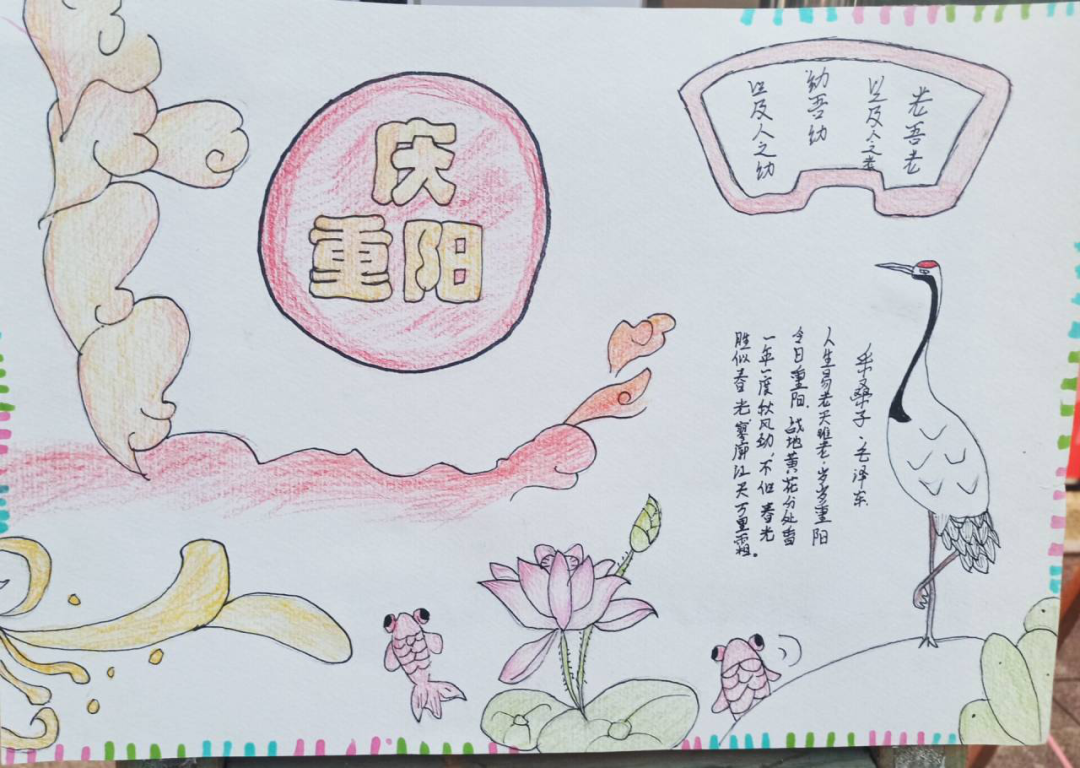 庆
重阳
老吾老
以及人之老
幼吾幼
以及人之幼
采桑子·毛泽东
人生易老天难老.岁岁重阳
今日重阳.战地黄花分外香
一年一度秋风劲,不似春光
胜似春光寥廓江天万里霜。